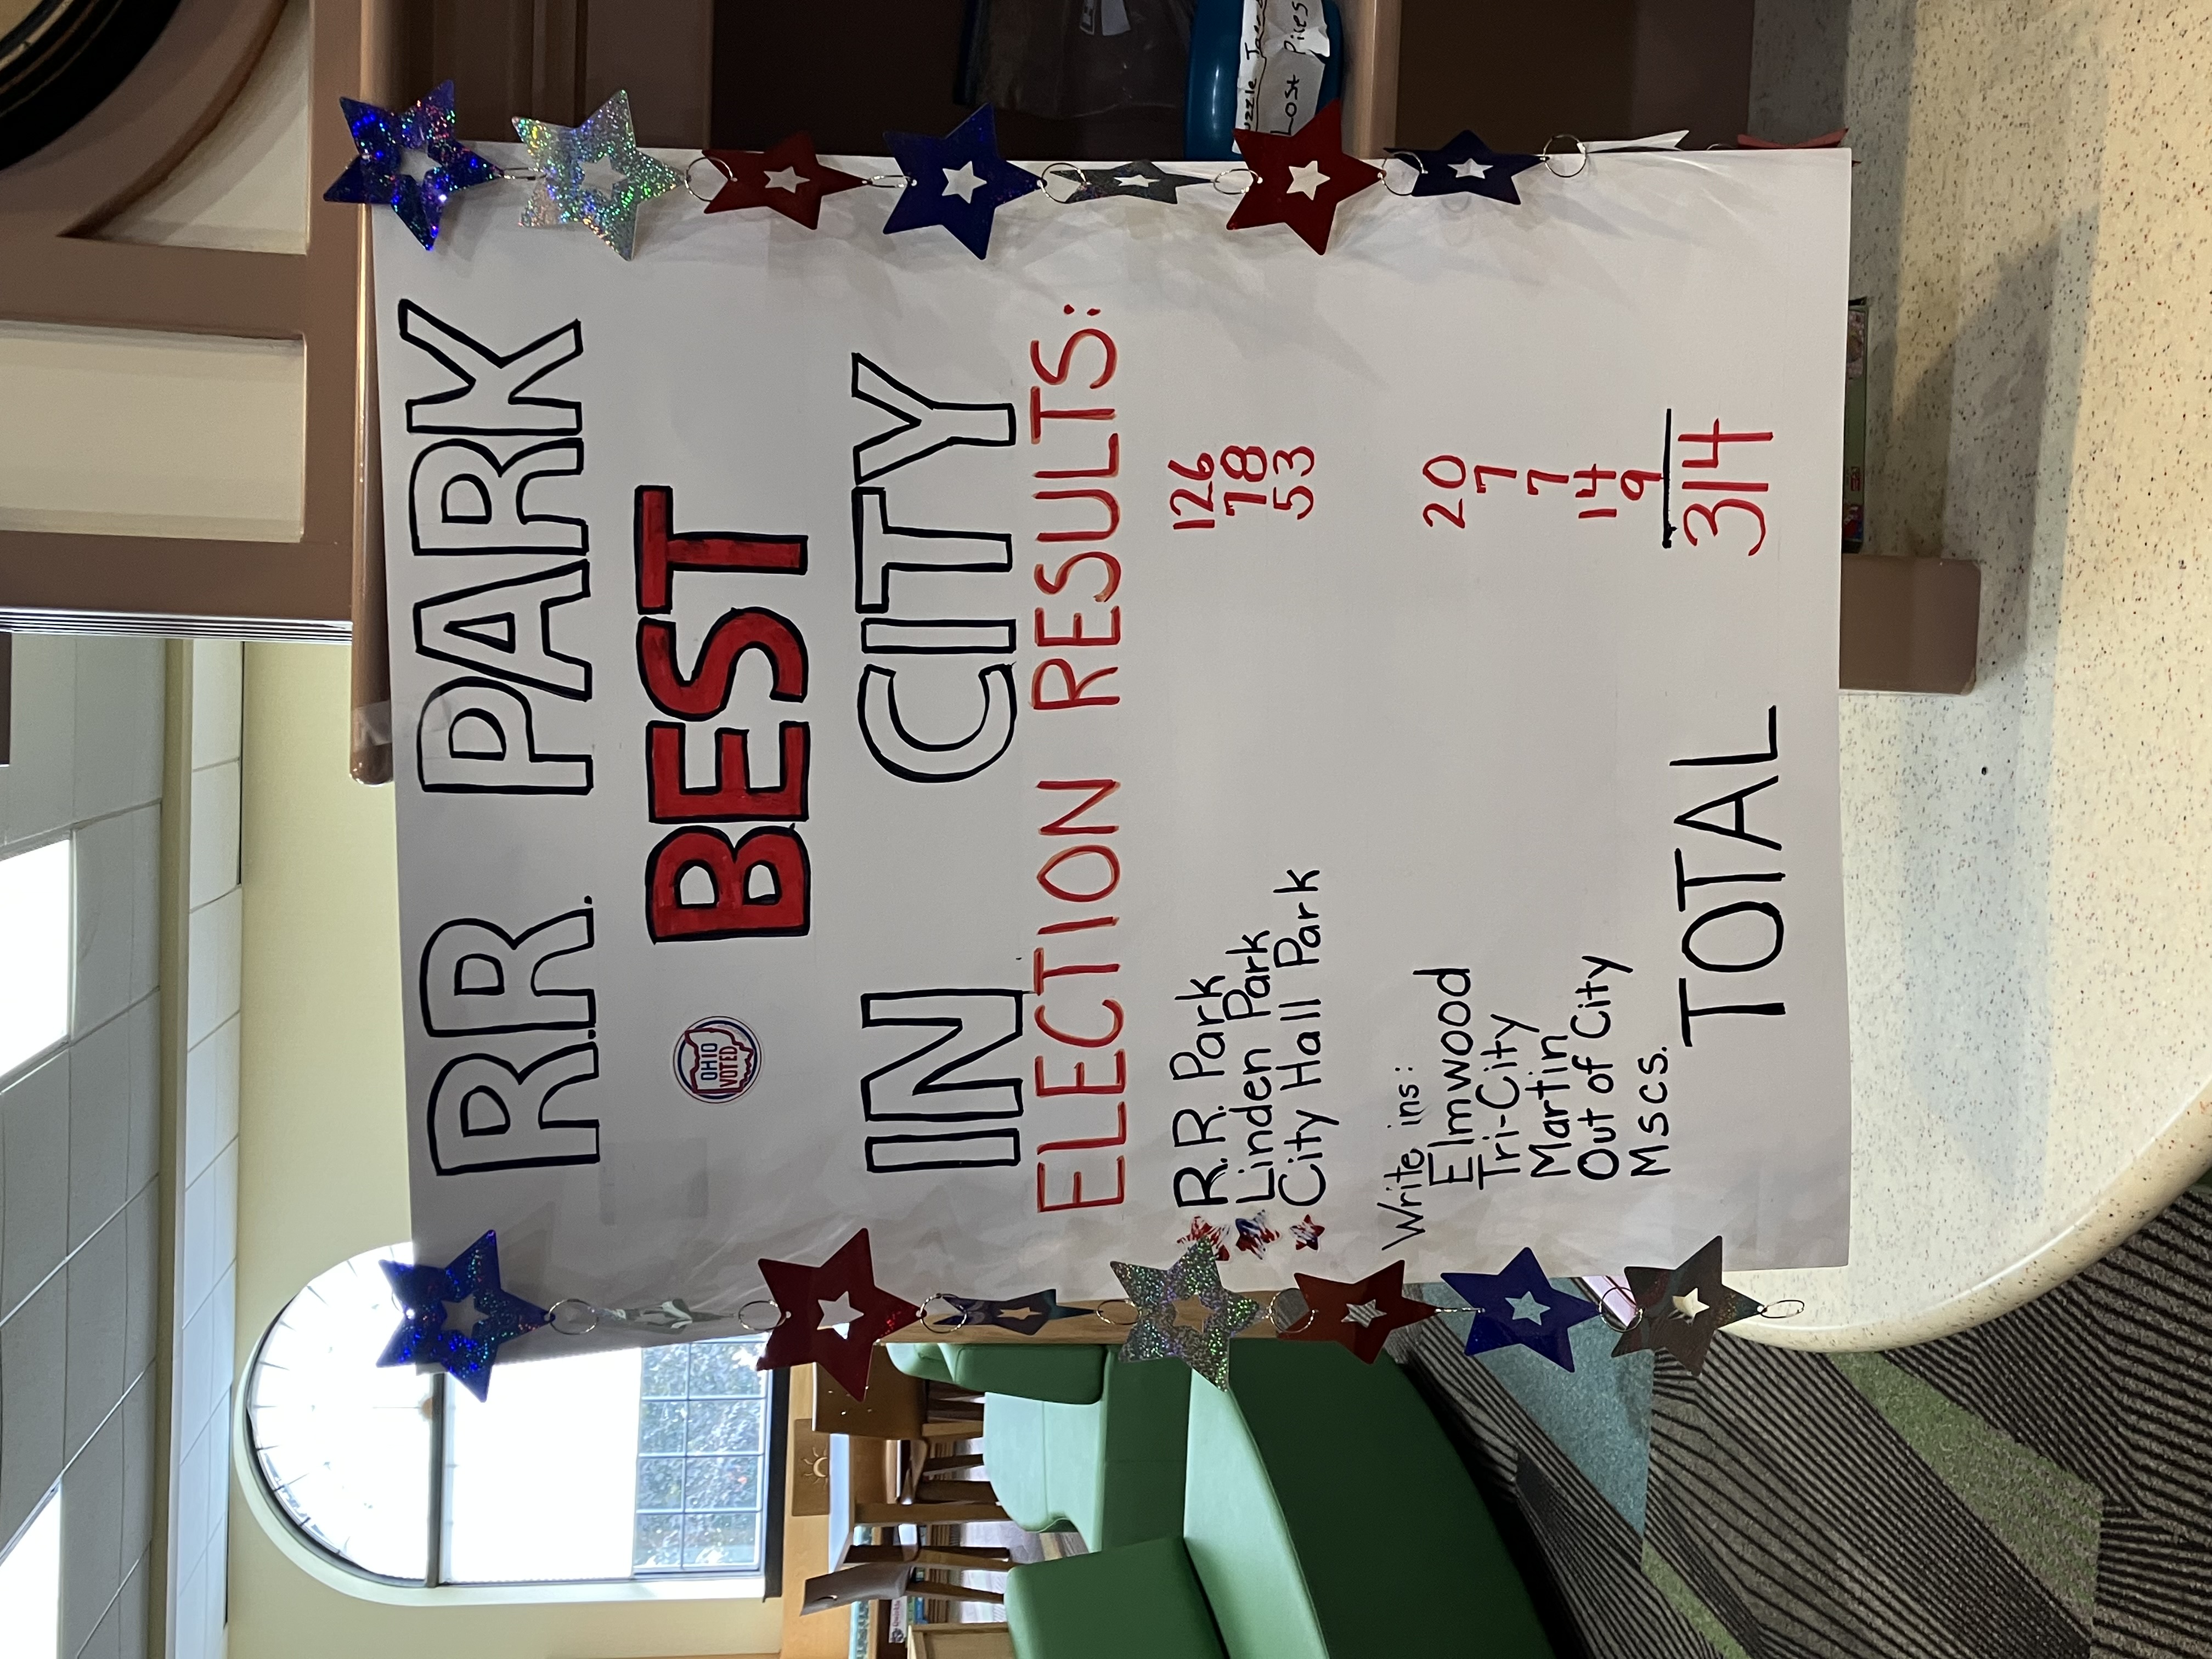 R.R. PARK
BEST
OHIO
VOTED
IN CITY
ELECTION RESULTS:
R.R. Park 126
Linden Park 78
City Hall Park 53
Write ins:
Elmwood 20
Tri-City 7
Martin 7
Out of City 14
Mscs. 9
TOTAL 314
Lost Pices